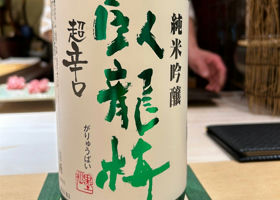 純米吟醸
臥龍梅
がりゅうばい
超辛口